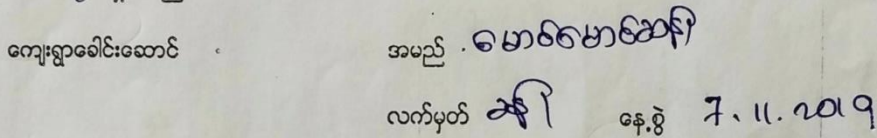 ကျေးရွာခေါင်းဆောင် အမည် . မောင်မောင်ဆန်း
လက်မှတ် ဆန်း နေ့စွဲ 7.11.2019